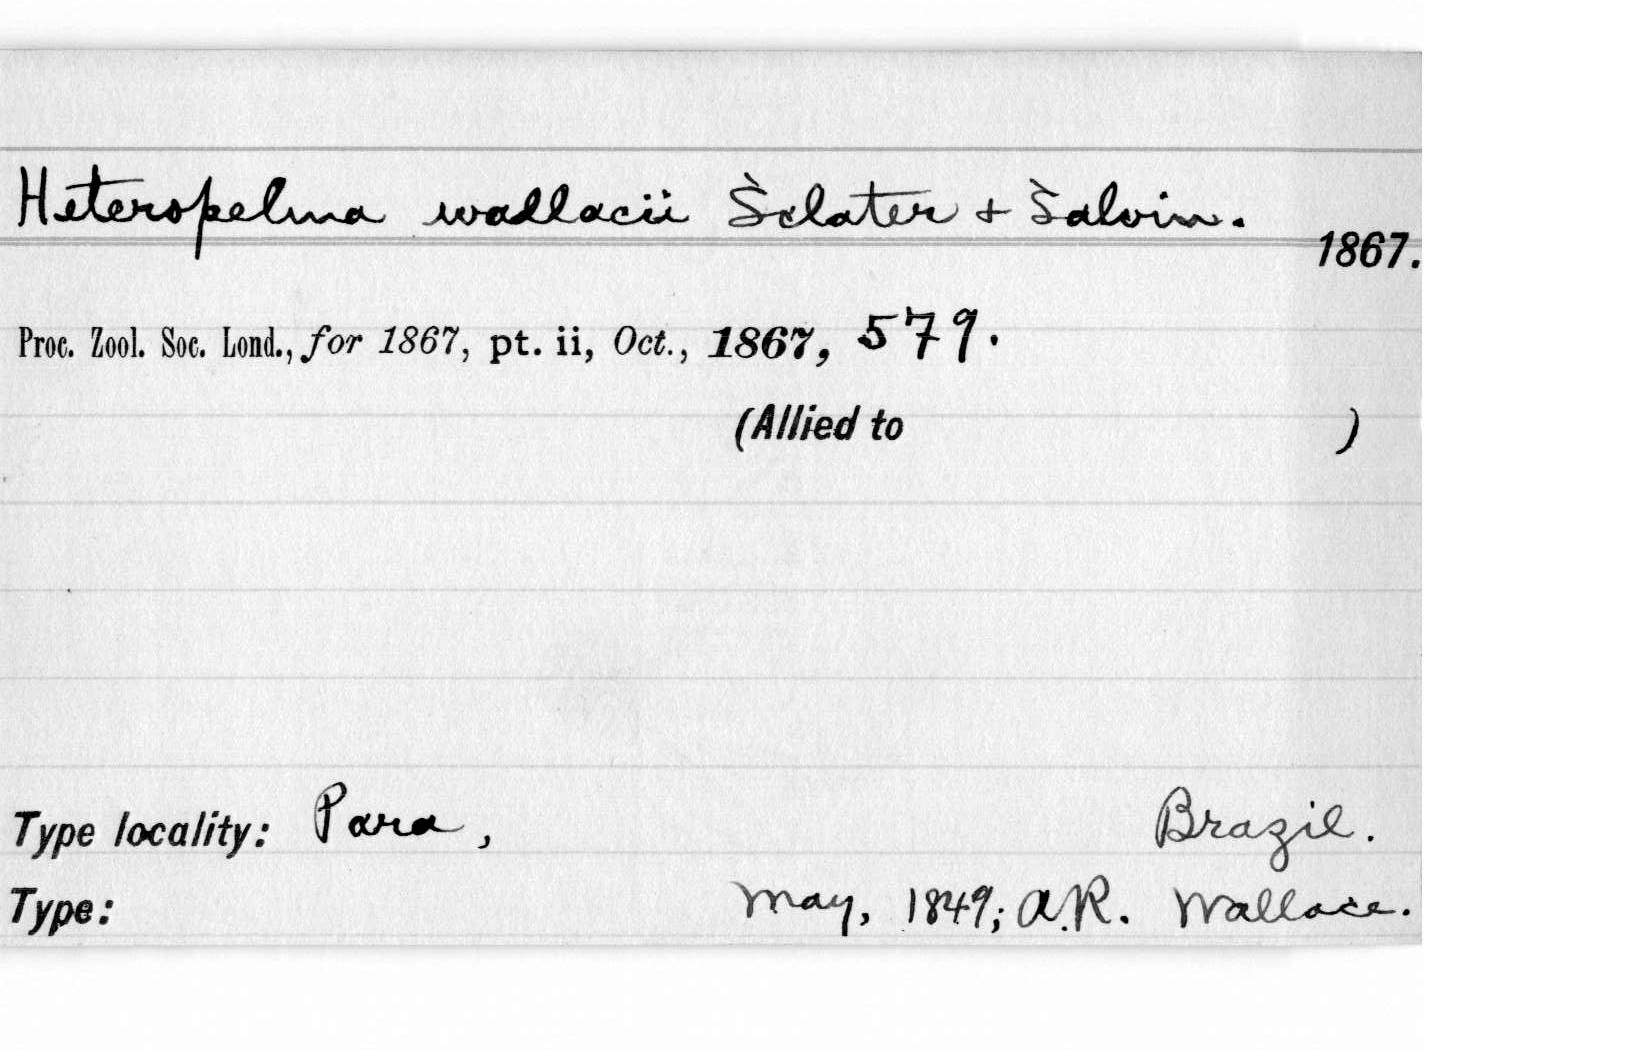 Heteropelma wallacii Sclater & Salvin.
1867.
Proc. Zool. Soc. Lond., for 1867, pt. ii, Oct., 1867, 579.
(Allied to )
Type locality: Para, Brazil.
Type: May, 1849; A.R. Wallace.